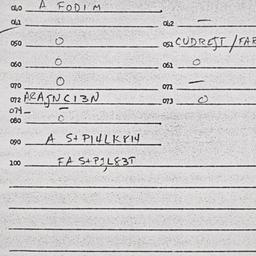 040 A FODIM
041 042 —
050 O 051 CUDREJT/FAR
060 O 061 O
070 O 071 —
072 ARAJNCI3N 073 O
074 —
080 O
090 A S+P14LK814
100 FA S+PJL83T